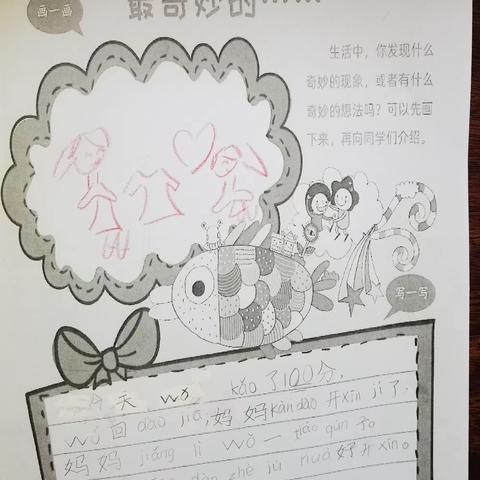 画一画
最奇妙的……
生活中，你发现什么
奇妙的现象，或者有什么
奇妙的想法吗？可以先画
下来，再向同学们介绍。
写一写
今天 wǒ kǎo 了100分，
wǒ 回 dào jiā，妈妈 kàn dào 开 xīn jí 了，
妈妈 jiǎng lì wǒ 一 tiáo qún 子
zhè jù huà 好开 xīn。